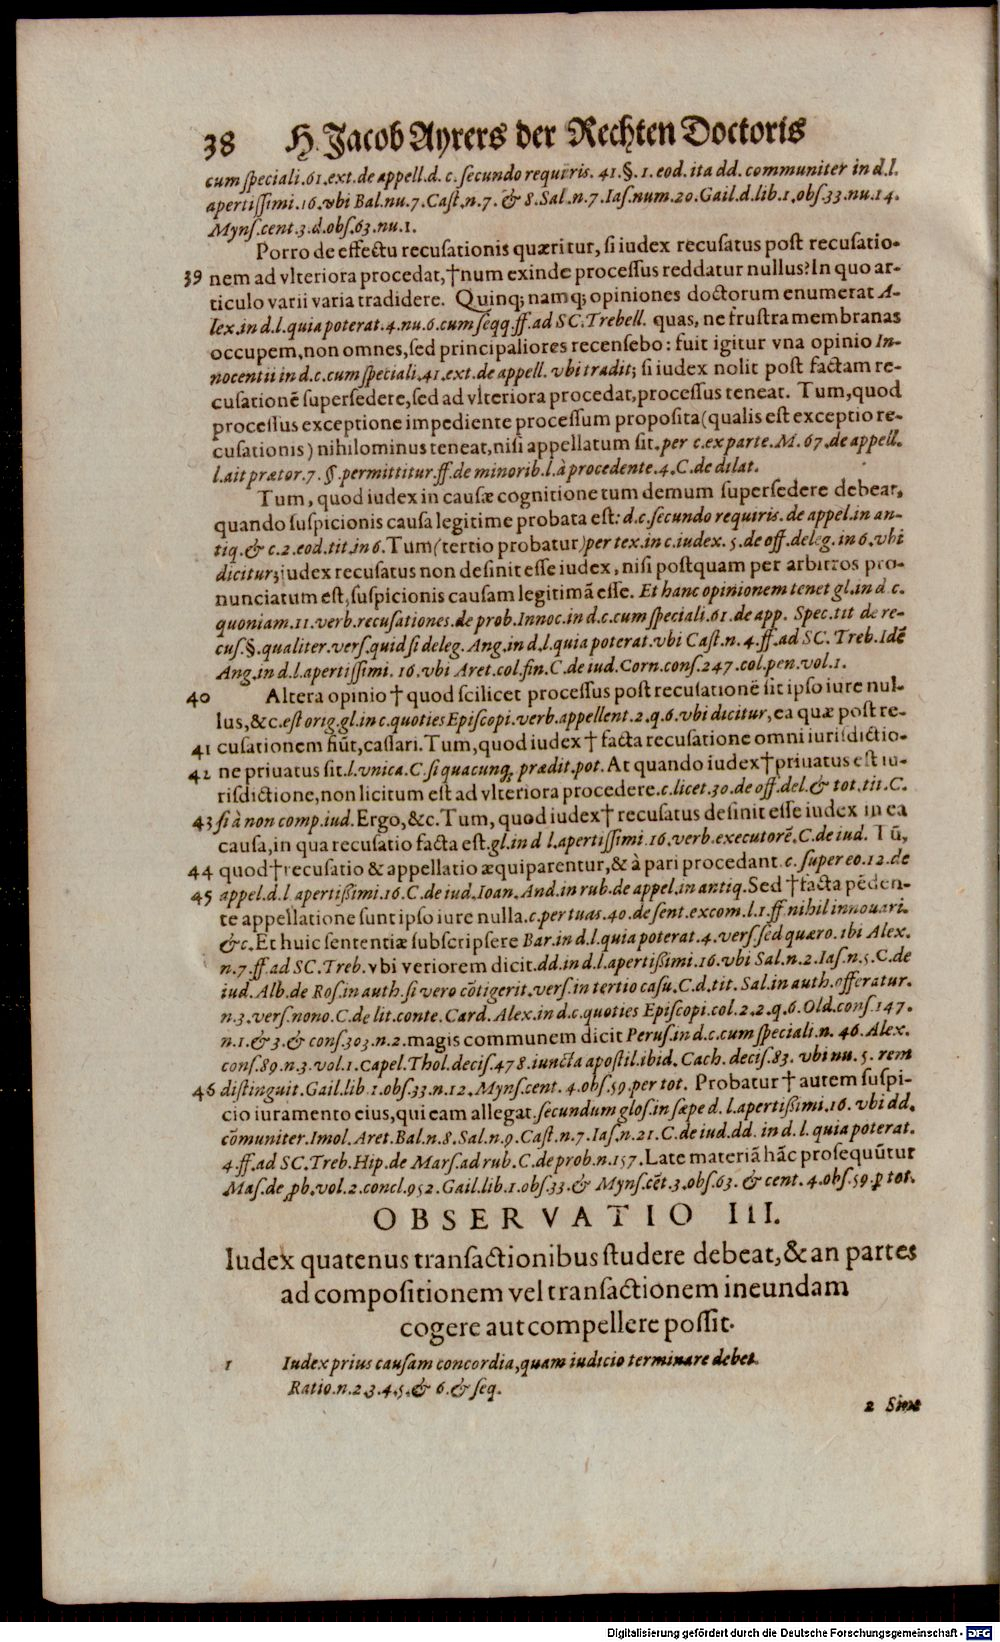 38 H. Jacob Ayrers der Rechten Doctoris
cum speciali.61.ext.de appell.d.c.secundo requiris.41.§.1.eod.ita dd.communiter in d.l.
apertissimi.16.vbi Bal.nu.7.Cast.n.7.& 8.Sal.n.7.Ias.num.20.Gail.d.lib.1.obs.33.nu.14.
Myns.cent.3.d.obs.63.nu.1.
Porro de effectu recusationis quæritur, si iudex recusatus post recusatio-
39 nem ad vlteriora procedat,†num exinde processus reddatur nullus? In quo ar-
ticulo varii varia tradidere. Quinq; namq; opiniones doctorum enumerat A-
lex.in d.l.quia poterat.4.nu.6.cum seqq.ff.ad SC.Trebell. quas, ne frustra membranas
occupem, non omnes, sed principaliores recensebo: fuit igitur vna opinio In-
nocentii in d.c.cum speciali.41.ext.de appell. vbi tradit; si iudex nolit post factam re-
cusationē supersedere, sed ad vlteriora procedat, processus teneat. Tum, quod
processus exceptione impediente processum proposita (qualis est exceptio re-
cusationis) nihilominus teneat, nisi appellatum sit.per c.ex parte.M.67.de appell.
l.ait prætor.7.§.permittitur.ff.de minorib.l.à procedente.4.C.de dilat.
Tum, quod iudex in causæ cognitione tum demum supersedere debeat,
quando suspicionis causa legitime probata est: d.c.secundo requiris.de appel.in an-
tiq.& c.2.eod.tit.in 6.Tum (tertio probatur) per tex.in c.iudex.5.de off.deleg.in 6.vbi
dicitur; iudex recusatus non desinit esse iudex, nisi postquam per arbitros pro-
nunciatum est, suspicionis causam legitimā esse. Et hanc opinionem tenet gl.in d.c.
quoniam.11.verb.recusationes.de prob.Innoc.in d.c.cum speciali.61.de app. Spec.tit de re-
cus.§.qualiter.vers.quid si deleg. Ang.in d.l.quia poterat.vbi Cast.n.4.ff.ad SC. Treb.Idē
Ang.in d.l.apertissimi.16.vbi Aret.col.fin.C.de iud.Corn.cons.247.col.pen.vol.1.
40 Altera opinio † quod scilicet processus post recusationē sit ipso iure nul-
lus,&c.est orig.gl.in c.quoties Episcopi.verb.appellent.2.q.6.vbi dicitur, ea quæ post re-
41 cusationem fiūt, cassari. Tum, quod iudex † facta recusatione omni iurisdictio-
42 ne priuatus sit.l.vnica.C.si quacunq; prædit.pot. At quando iudex†priuatus est iu-
risdictione, non licitum est ad vlteriora procedere.c.licet.30.de off.del.& tot.tit.C.
43 si à non comp.iud.Ergo,&c.Tum, quod iudex† recusatus desinit esse iudex in ea
causa, in qua recusatio facta est.gl.in d l.apertissimi.16.verb.executorē.C.de iud. Tū,
44 quod†recusatio & appellatio æquiparentur, & à pari procedant.c.super eo.12.de
45 appel.d.l apertissimi.16.C.de iud.Ioan.And.in rub.de appel.in antiq.Sed †facta pēden-
te appellatione sunt ipso iure nulla.c.per tuas.40.de sent.excom.l.1.ff.nihil innouari.
&c.Et huic sententiæ subscripsere Bar.in d.l.quia poterat.4.vers.sed quæro.ibi Alex.
n.7.ff.ad SC.Treb.vbi veriorem dicit.dd.in d.l.apertissimi.16.vbi Sal.n.2.Ias.n.5.C.de
iud.Alb.de Ros.in auth.si vero cōtigerit.vers.in tertio casu.C.d.tit.Sal.in auth.offeratur.
n.3.vers.nono.C.de lit.conte.Card. Alex.in d.c.quoties Episcopi.col.2.2.q.6.Old.cons.147.
n.1.& 3.& cons.303.n.2.magis communem dicit Perus.in d.c.cum speciali.n.46.Alex.
cons.89.n.3.vol.1.Capel.Thol.decis.478.iuncta apostil.ibid.Cach.decis.83.vbi nu.5.rem
46 distinguit.Gail.lib.1.obs.33.n.12.Myns.cent.4.obs.59.per tot. Probatur † autem suspi-
cio iuramento eius, qui eam allegat.secundum glos.in sæpe d.l.apertissimi.16.vbi dd.
cōmuniter.Imol.Aret.Bal.n.8.Sal.n.9.Cast.n.7.Ias.n.21.C.de iud.dd.in d.l.quia poterat.
4.ff.ad SC.Treb.Hip.de Mars.ad rub.C.de prob.n.157.Late materiā hāc prosequūtur
Mas.de ꝓb.vol.2.concl.952.Gail.lib.1.obs.33.& Myns.cēt.3.obs.63.& cent.4.obs.59.ꝑ tot.
OBSERVATIO III.
Iudex quatenus transactionibus studere debeat, & an partes
ad compositionem vel transactionem ineundam
cogere aut compellere possit.
1 Iudex prius causam concordia, quam iudicio terminare debet.
Ratio.n.2.3.4.5.& 6.& seq.
2 Sine
Digitalisierung gefördert durch die Deutsche Forschungsgemeinschaft - DFG